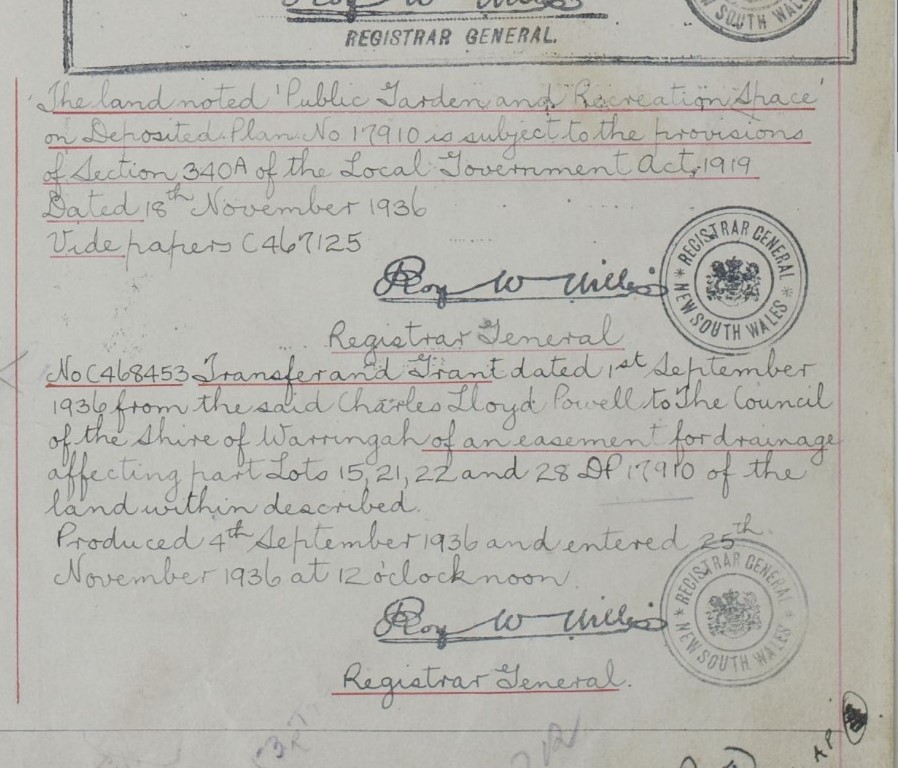 REGISTRAR GENERAL.
NEW SOUTH WALES
The land noted 'Public Garden and Recreation Space'
on Deposited Plan No 17910 is subject to the provisions
of Section 340A of the Local Government Act, 1919
Dated 18th November 1936
Vide papers C467125
Roy W Willis
REGISTRAR GENERAL
NEW SOUTH WALES
Registrar General
No C468453 Transfer and Grant dated 1st September
1936 from the said Charles Lloyd Powell to The Council
of the Shire of Warringah of an easement for drainage
affecting part Lots 15, 21, 22 and 28 DP 17910 of the
land within described.
Produced 4th September 1936 and entered 25th
November 1936 at 12 o'clock noon.
Roy W Willis
REGISTRAR GENERAL
NEW SOUTH WALES
Registrar General.
AP